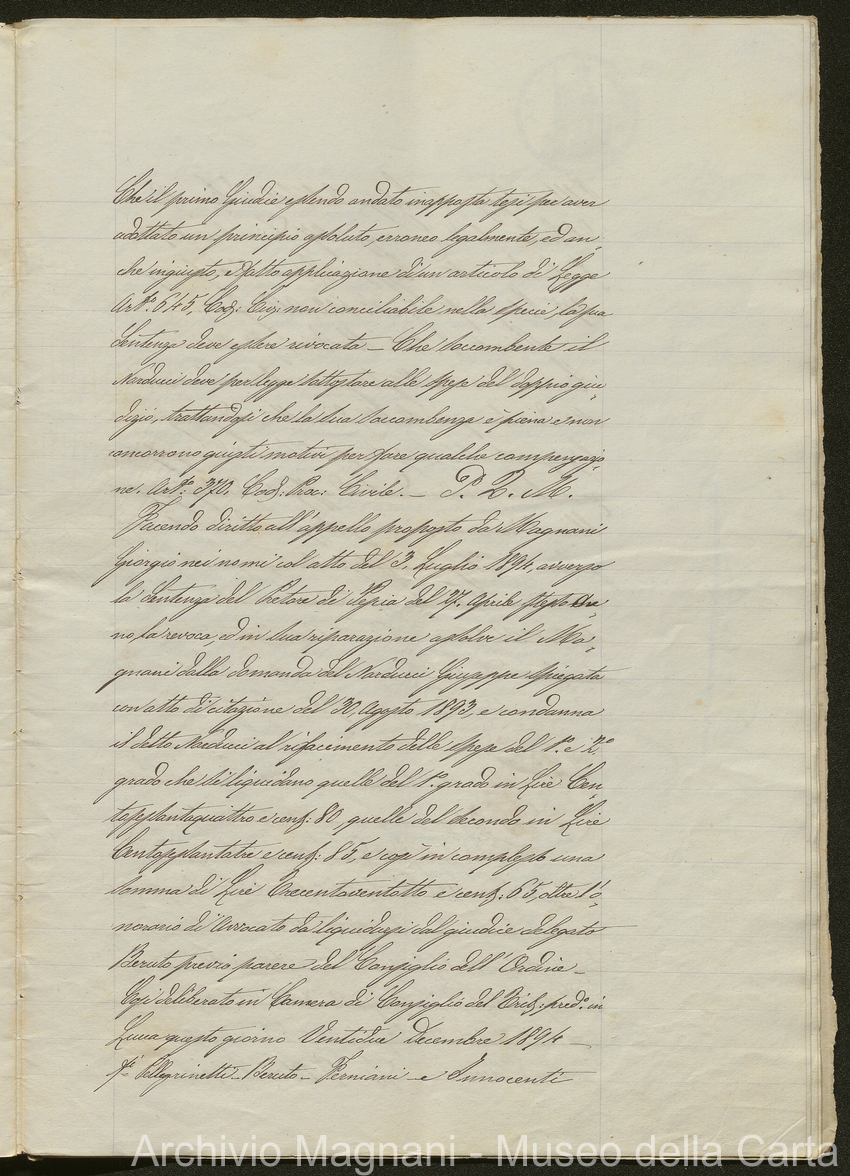 Che il primo Giudice essendo andato in opposta tesi per aver
adottato un principio assoluto, erroneo legalmente, ed an-
che ingiusto, e fatto applicazione di un articolo di Legge
Art.º 645, Cod: Civ: non conciliabile nella specie la sua
Sentenza deve essere revocata – Che soccombente il
Narducci deve per legge sottostare alle spese del doppio giu-
dizio, trattandosi che la sua soccombenza è piena e non
concorrono giusti motivi per fare qualche compensazio-
ne. Art.º 370. Cod: Proc: Civile. – P. Q. M.
Facendo diritto all'appello proposto da Magnani
Giorgio nei nomi col atto del 3, Luglio 1894, avverso
la Sentenza del Pretore di Pescia del 27. Aprile stesso An-
no la revoca, ed in sua riparazione assolve il Ma-
gnani dalla domanda del Narducci Giuseppe spiegata
con atto di citazione del 30, Agosto 1893, e condanna
il detto Narducci al rifacimento delle spese del 1º. e 2.º
grado che si liquidano quelle del 1º. grado in Lire Cen-
tocinquantaquattro e cent: 80, quelle del secondo in Lire
Centosettantatre e cent: 85, e così in complesso una
somma di Lire Trecentoventotto e cent: 65, oltre l'o-
norario di Avvocato da liquidarsi dal giudice delegato
Beruto previo parere del Consiglio dell'Ordine –
Così deliberato in Camera di Consiglio del Trib: pred.º in
Lucca questo giorno Ventidue Decembre 1894 –
Fti Pellegrinetti – Beruto – Ferniani – e Innocenti
Archivio Magnani - Museo della Carta